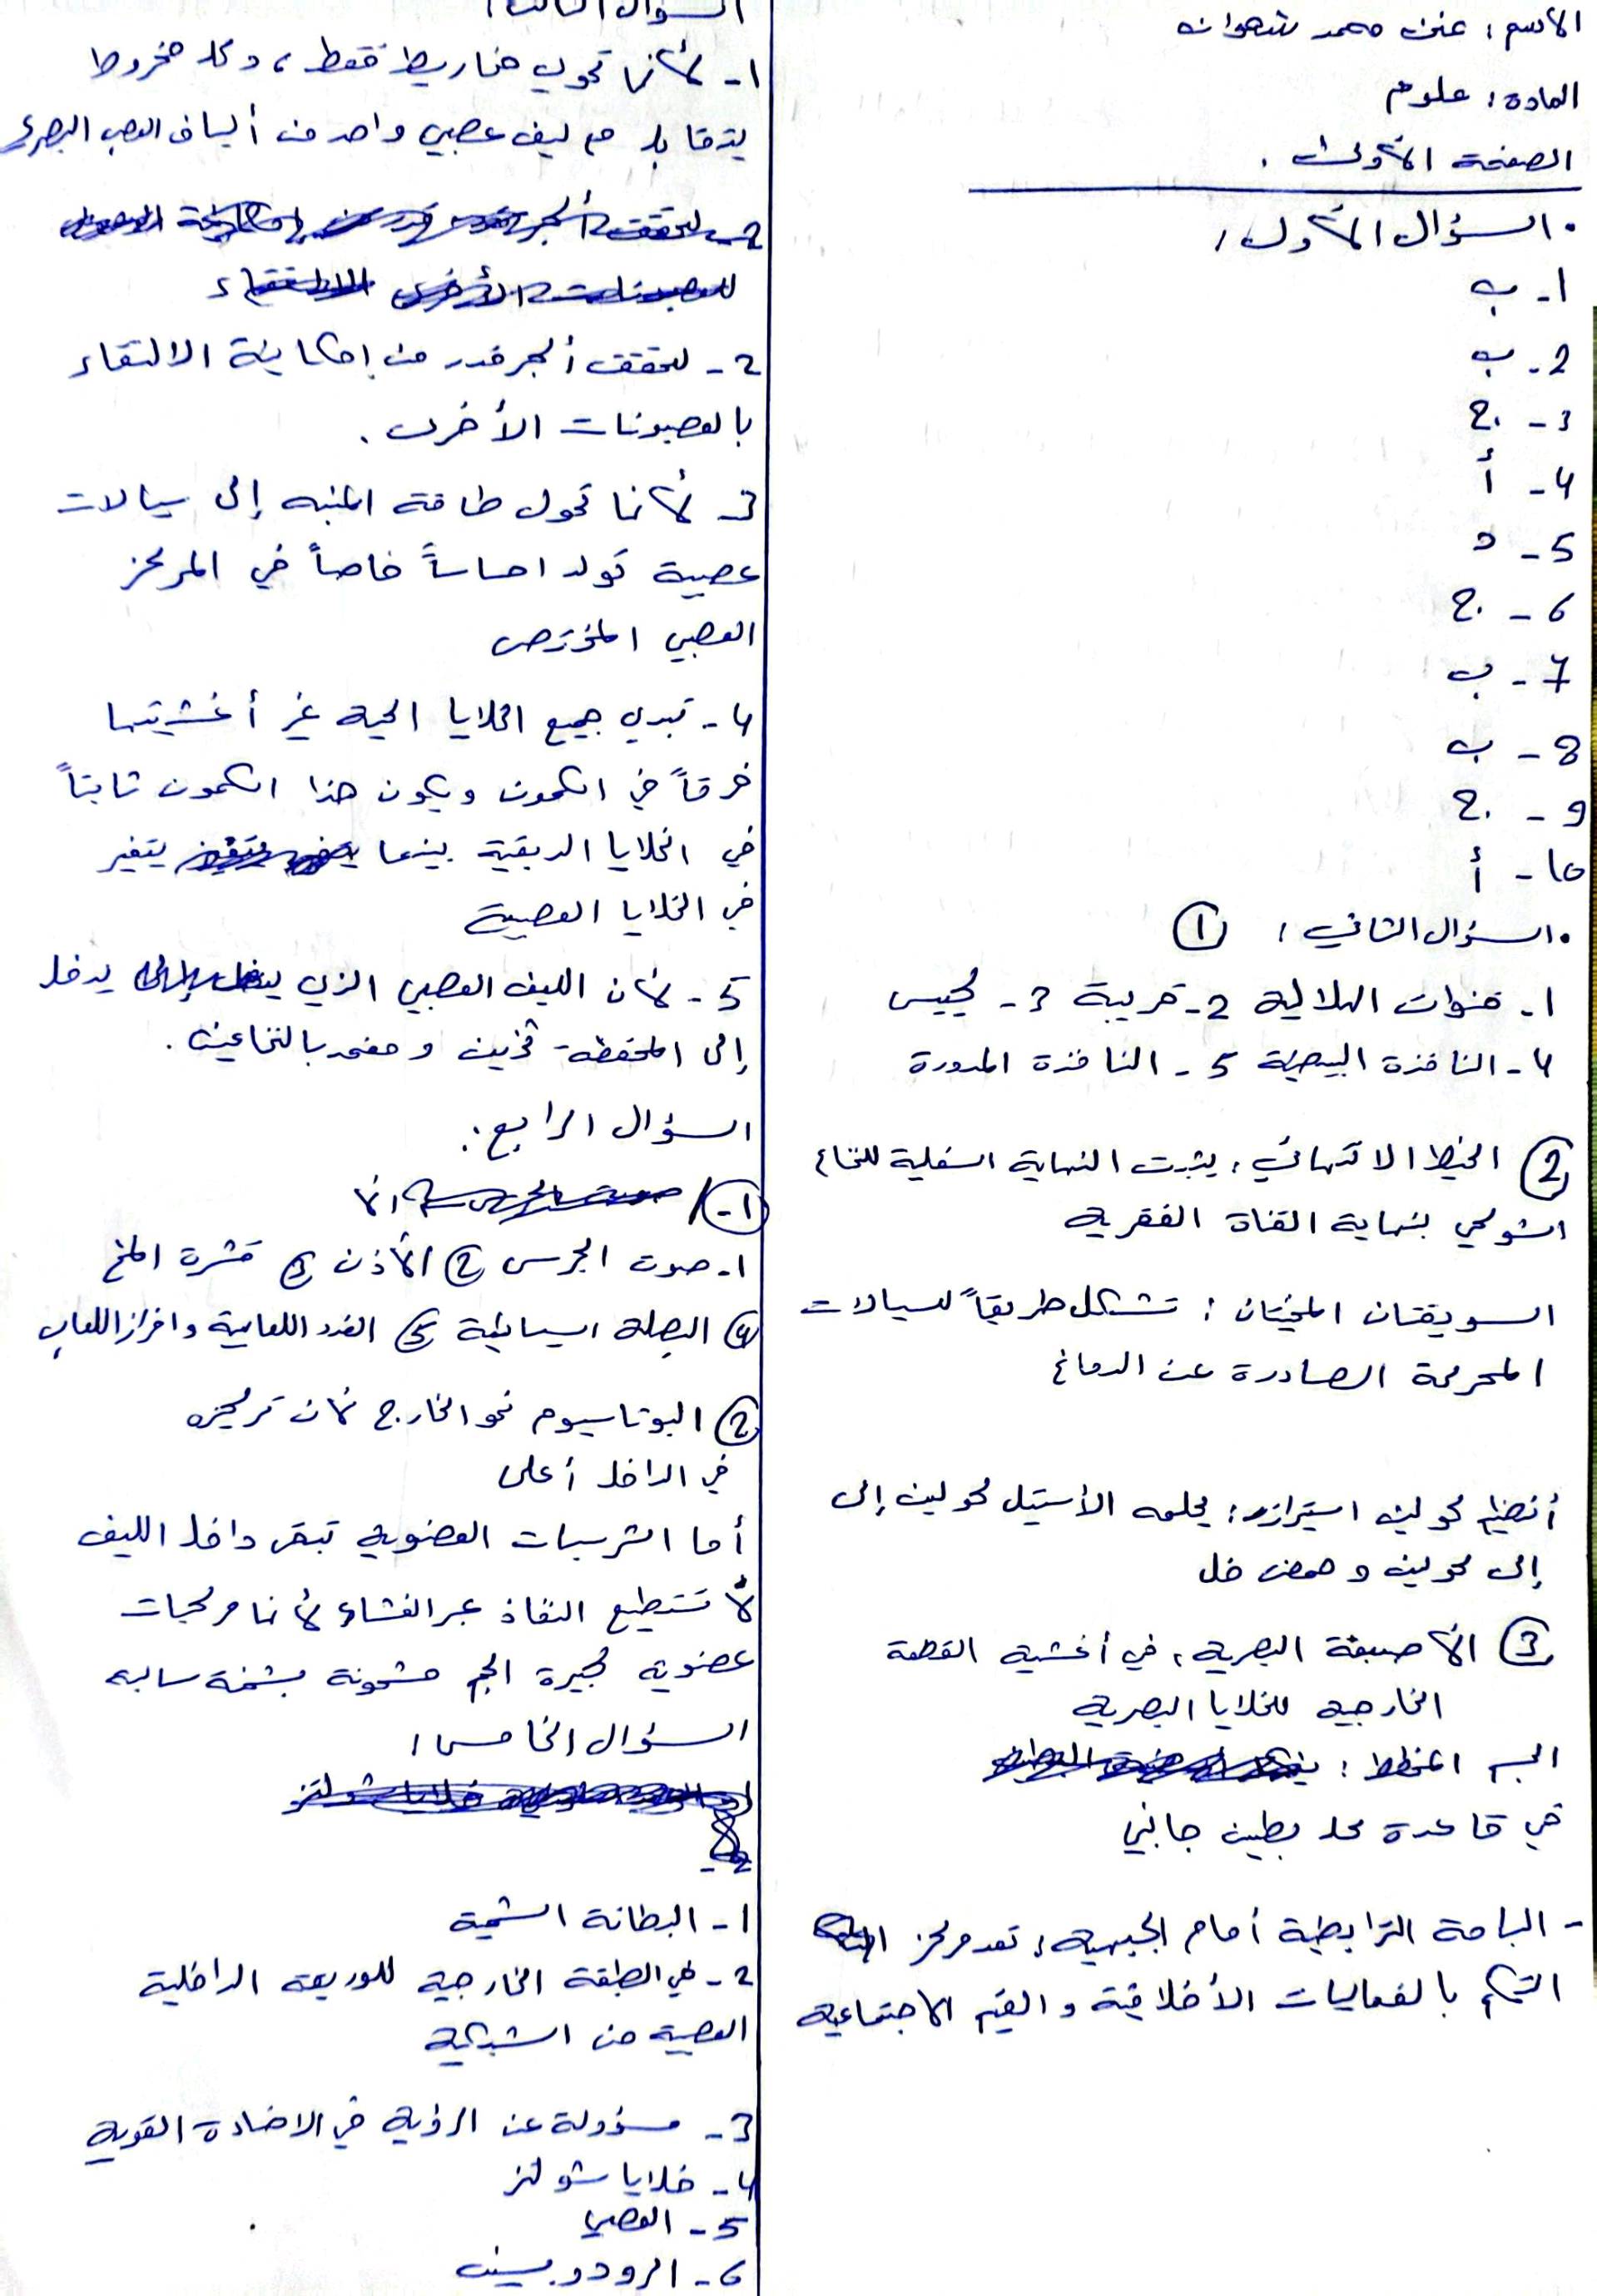 الاسم: محمد شهوان
المادة: علوم
الصفحة الأولى.
• السؤال الأول:
1- ب
2- ب
3- ج
4- أ
5- د
6- ج
7- ب
8- ب
9- ج
10- أ
• السؤال الثاني: ①
1- قنوات الهلالية 2- قريبة 3- كييس
4- النافذة البيضية 5- النافذة المدورة
② الخيط الانتهائي: يثبت النهاية السفلية للنخاع
الشوكي بنهاية القناة الفقرية
السويقتان المخيتان: تشكل طريقاً للسيالات
المحركة الصادرة عن الدماغ
أنظيم كولين استيراز: يحلمه الأستيل كولين إلى
إلى كولين وحمض خل
③ الأصبغة البصرية: في أغشية القطعة
الخارجية للخلايا البصرية
الجسم المخطط:
في قاعدة كل بطين جانبي
- الباحة الترابطية أمام الجبهية: تعد مركز
التحكم بالفعاليات الأخلاقية والقيم الاجتماعية
السؤال الثالث:
1- لأنها تحوي مخاريط فقط، وكل مخروط
يتقابل مع ليف عصبي واحد من ألياف العصب البصري
2- لتحقق أكبر قدر من إمكانية الالتقاء
بالعصبونات الأخرى.
3- لأنها تحول طاقة المنبه إلى سيالات
عصبية تولد احساساً خاصاً في المركز
العصبي المختص
4- تبدي جميع الخلايا الحية عبر أغشيتها
فرقاً في الكمون ويكون هذا الكمون ثابتاً
في الخلايا الدبقية بينما يتغير
في الخلايا العصبية
5- لأن الليف العصبي الذي يدخل
إلى المحفظة ومغمد بالنخاعين.
السؤال الرابع:
①-
1- صوت الجرس ② الأذن ③ قشرة المخ
④ البصلة السيسائية ⑤ الغدد اللعابية وافراز اللعاب
② البوتاسيوم نحو الخارج لأن تركيزه
في الداخل أعلى
أما الشرسبات العضوية تبقى داخل الليف
لا تستطيع النفاذ عبر الغشاء لأنها مركبات
عضوية كبيرة الحجم مشحونة بشحنة سالبه
السؤال الخامس:
1- البطانة الشمية
2- هي الطبقة الخارجية للوريقة الداخلية
العصبية من الشبكية
3- مسؤولة عن الرؤية في الاضاءة القوية
4- خلايا شولتز
5- العصي
6- الرودوبسين